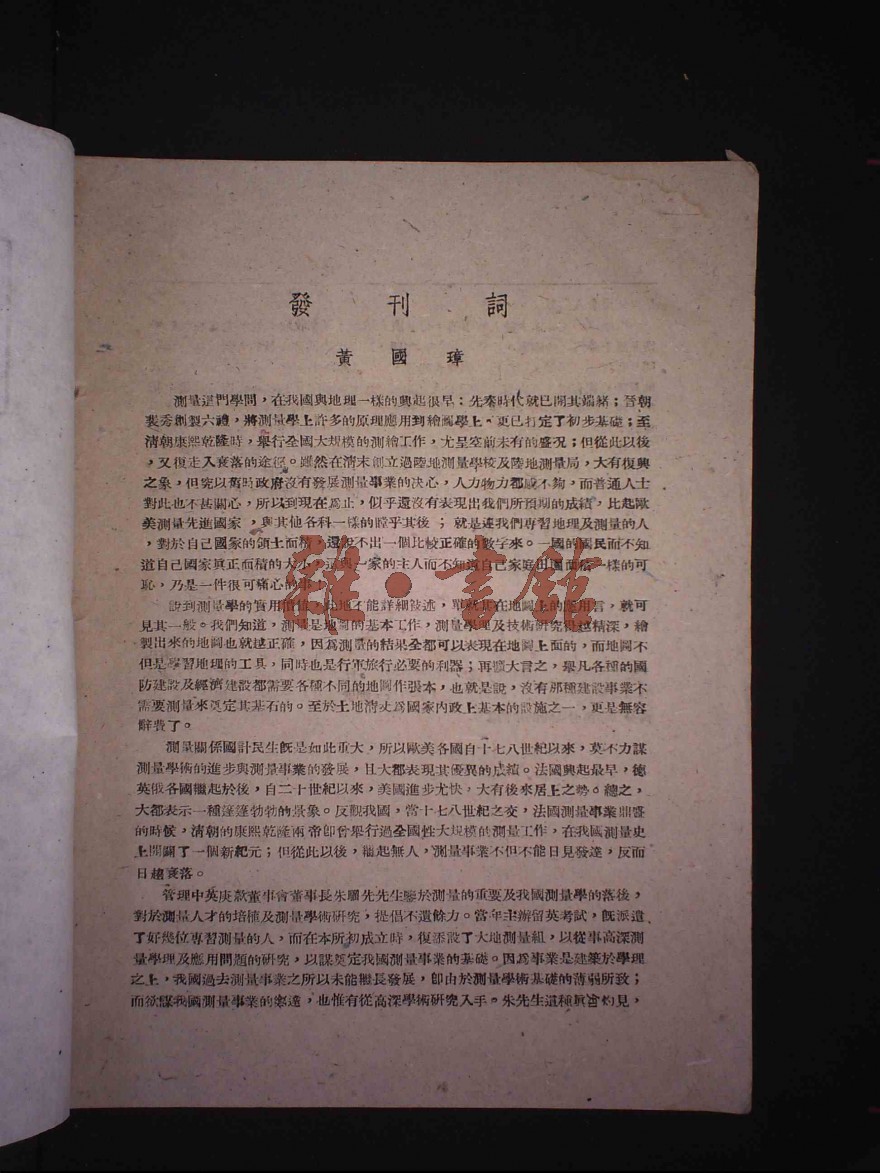 發刊詞
黃國璋
測量這門學問，在我國與地理一樣的興起很早；先秦時代就已開其端緒；晉朝
裴秀創製六禮，將測量學上許多的原理應用到繪圖學上，更已打定了初步基礎；至
清朝康熙乾隆時，舉行全國大規模的測繪工作，尤呈空前未有的盛況；但從此以後
，又復走入衰落的途徑。雖然在清末創立過陸地測量學校及陸地測量局，大有復興
之象，但究以舊時政府沒有發展測量事業的決心，人力物力都感不夠，而普通人士
對此也不甚關心，所以到現在為止，似乎還沒有表現出我們所預期的成績，比起歐
美測量先進國家，與其他各科一樣的瞠乎其後；就是連我們專習地理及測量的人
，對於自己國家的領土面積，還說不出一個比較正確的數字來。一國的國民而不知
道自己國家真正面積的大小，這與一家的主人而不知道自己家庭田園面積一樣的可
恥，乃是一件很可痛心的事！
說到測量學的實用價值，此地不能詳細敘述，單就其在地圖上的應用言，就可
見其一般。我們知道，測量是地圖的基本工作，測量學理及技術研究得越精深，繪
製出來的地圖也就越正確，因為測量的結果全都可以表現在地圖上面的，而地圖不
但是學習地理的工具，同時也是行軍旅行必要的利器；再擴大言之，舉凡各種的國
防建設及經濟建設都需要各種不同的地圖作張本，也就是說，沒有那種建設事業不
需要測量來奠定其基石的。至於土地清丈為國家內政上基本的設施之一，更是無容
辭費了。
測量關係國計民生既是如此重大，所以歐美各國自十七八世紀以來，莫不力謀
測量學術的進步與測量事業的發展，且大都表現其優異的成績。法國興起最早，德
英俄各國繼起於後，自二十世紀以來，美國進步尤快，大有後來居上之勢。總之，
大都表示一種蓬蓬勃勃的景象。反觀我國，當十七八世紀之交，法國測量事業鼎盛
的時候，清朝的康熙乾隆兩帝即曾舉行過全國性大規模的測量工作，在我國測量史
上開闢了一個新紀元；但從此以後，繼起無人，測量事業不但不能日見發達，反而
日趨衰落。
管理中英庚款董事會董事長朱騮先先生鑒於測量的重要及我國測量學的落後，
對於測量人才的培植及測量學術研究，提倡不遺餘力。當年主辦留英考試，既派遣
了好幾位專習測量的人，而在本所初成立時，復添設了大地測量組，以從事高深測
量學理及應用問題的研究，以謀奠定我國測量事業的基礎。因為事業是建築於學理
之上，我國過去測量事業之所以未能繼長發展，即由於測量學術基礎的薄弱所致；
而欲謀我國測量事業的邃遠，也惟有從高深學術研究入手。朱先生這種真知灼見，
雜·書館